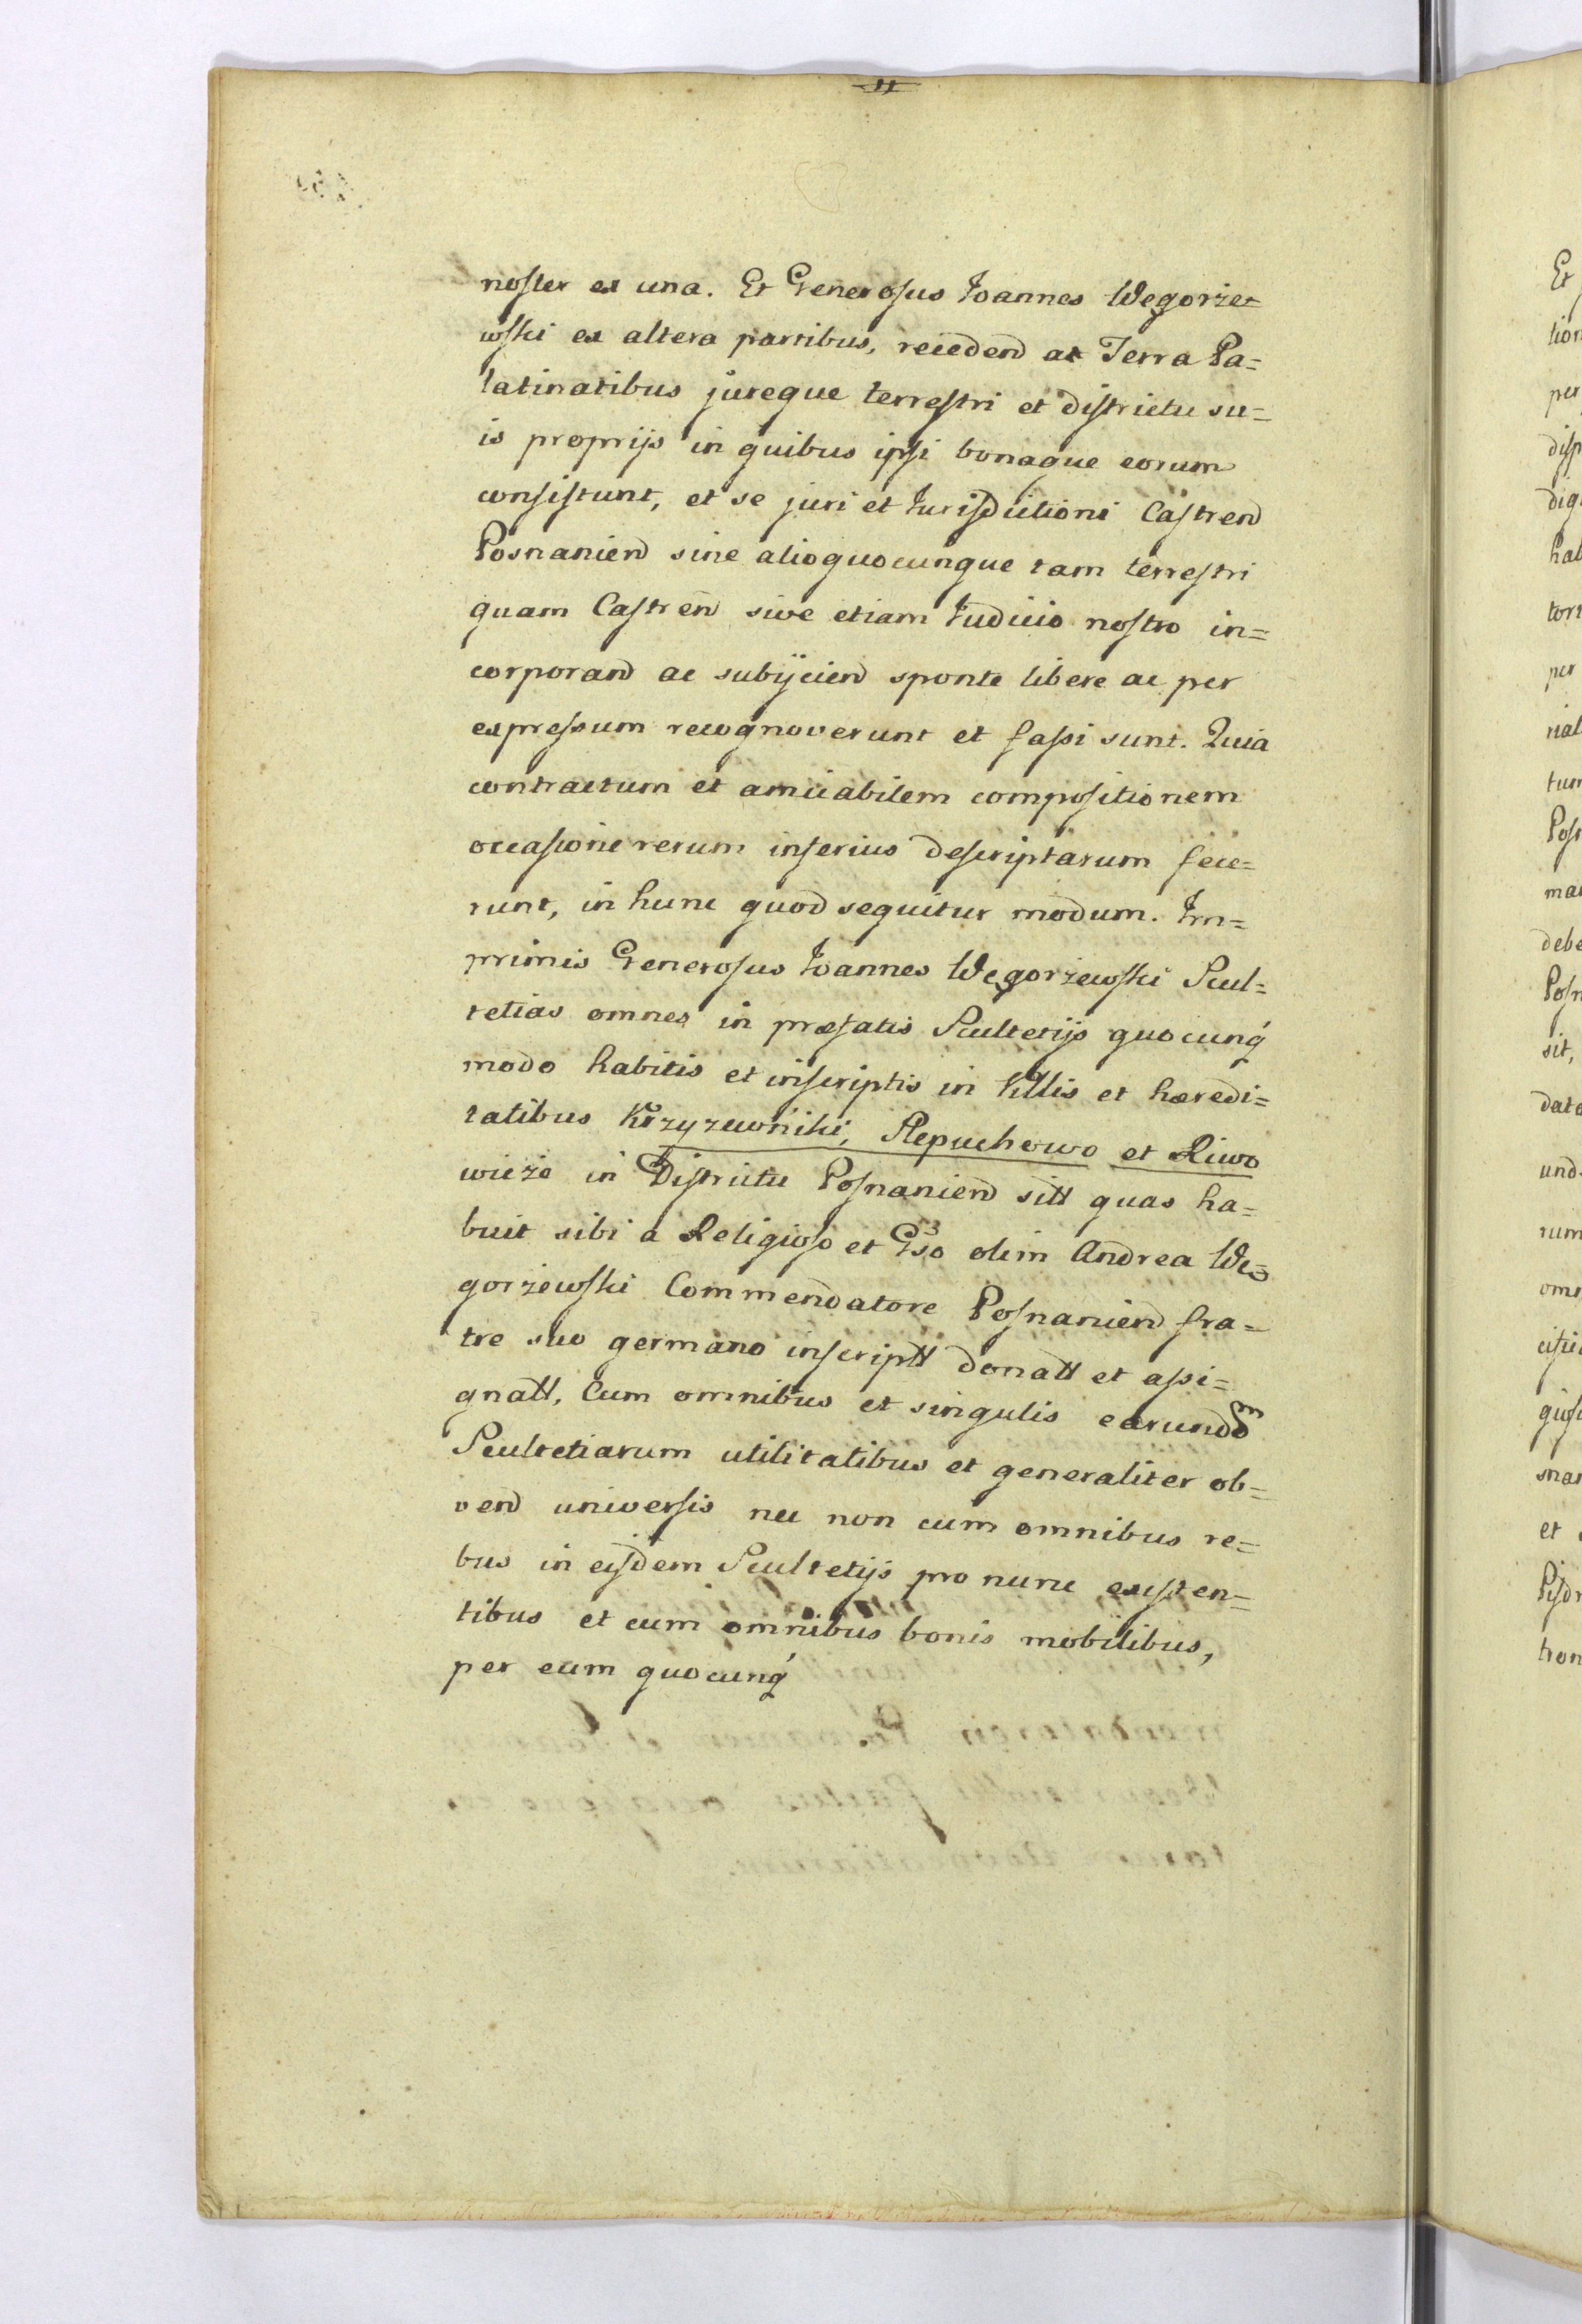 noster ex una. Et Generosus Joannes Węgorze=
wski ex altera partibus, recedend ac Terra Pa=
latinatibus jureque terrestri et districtu su=
is proprijs in quibus ipsi bonaque eorum
consistunt, et se juri et Jurisdictioni Castren
Posnanien sine alioquocunque tam terrestri
quam Castren sive etiam Judicio nostro in=
corporand ac subijcien sponte libere ac per
expressum recognoverunt et fassi sunt. Quia
contractum et amicabilem compositionem
occasione rerum inferius descriptarum fece=
runt, in hunc quod sequitur modum. Im=
primis Generosus Joannes Węgorzewski Scul=
tetias omnes in præfatis Scultetijs quocunq́
modo habitis et inscriptis in Villis et hæredi=
tatibus Krzyzewniki, Stepuchowo et Riwo
wieże in Districtu Posnanien sitt quas ha=
buit sibi a Religioso et Gso olim Andrea Wę=
gorzewski Commendatore Posnanien fra=
tre suo germano inscriptt donatt et assi=
gnatt, Cum omnibus et singulis earundem
Scultetiarum utilitatibus et generaliter ob=
ven universis nec non cum omnibus re=
bus in eisdem Scultetijs pro nunc existen=
tibus et cum omnibus bonis mobilibus,
per eum quocunq́
Et
lion
per
disp
dig
hab
tori
per
rial
tum
Posn
man
debe
Posn
sit,
data
und
rum
omn
gios
snan
et
tron